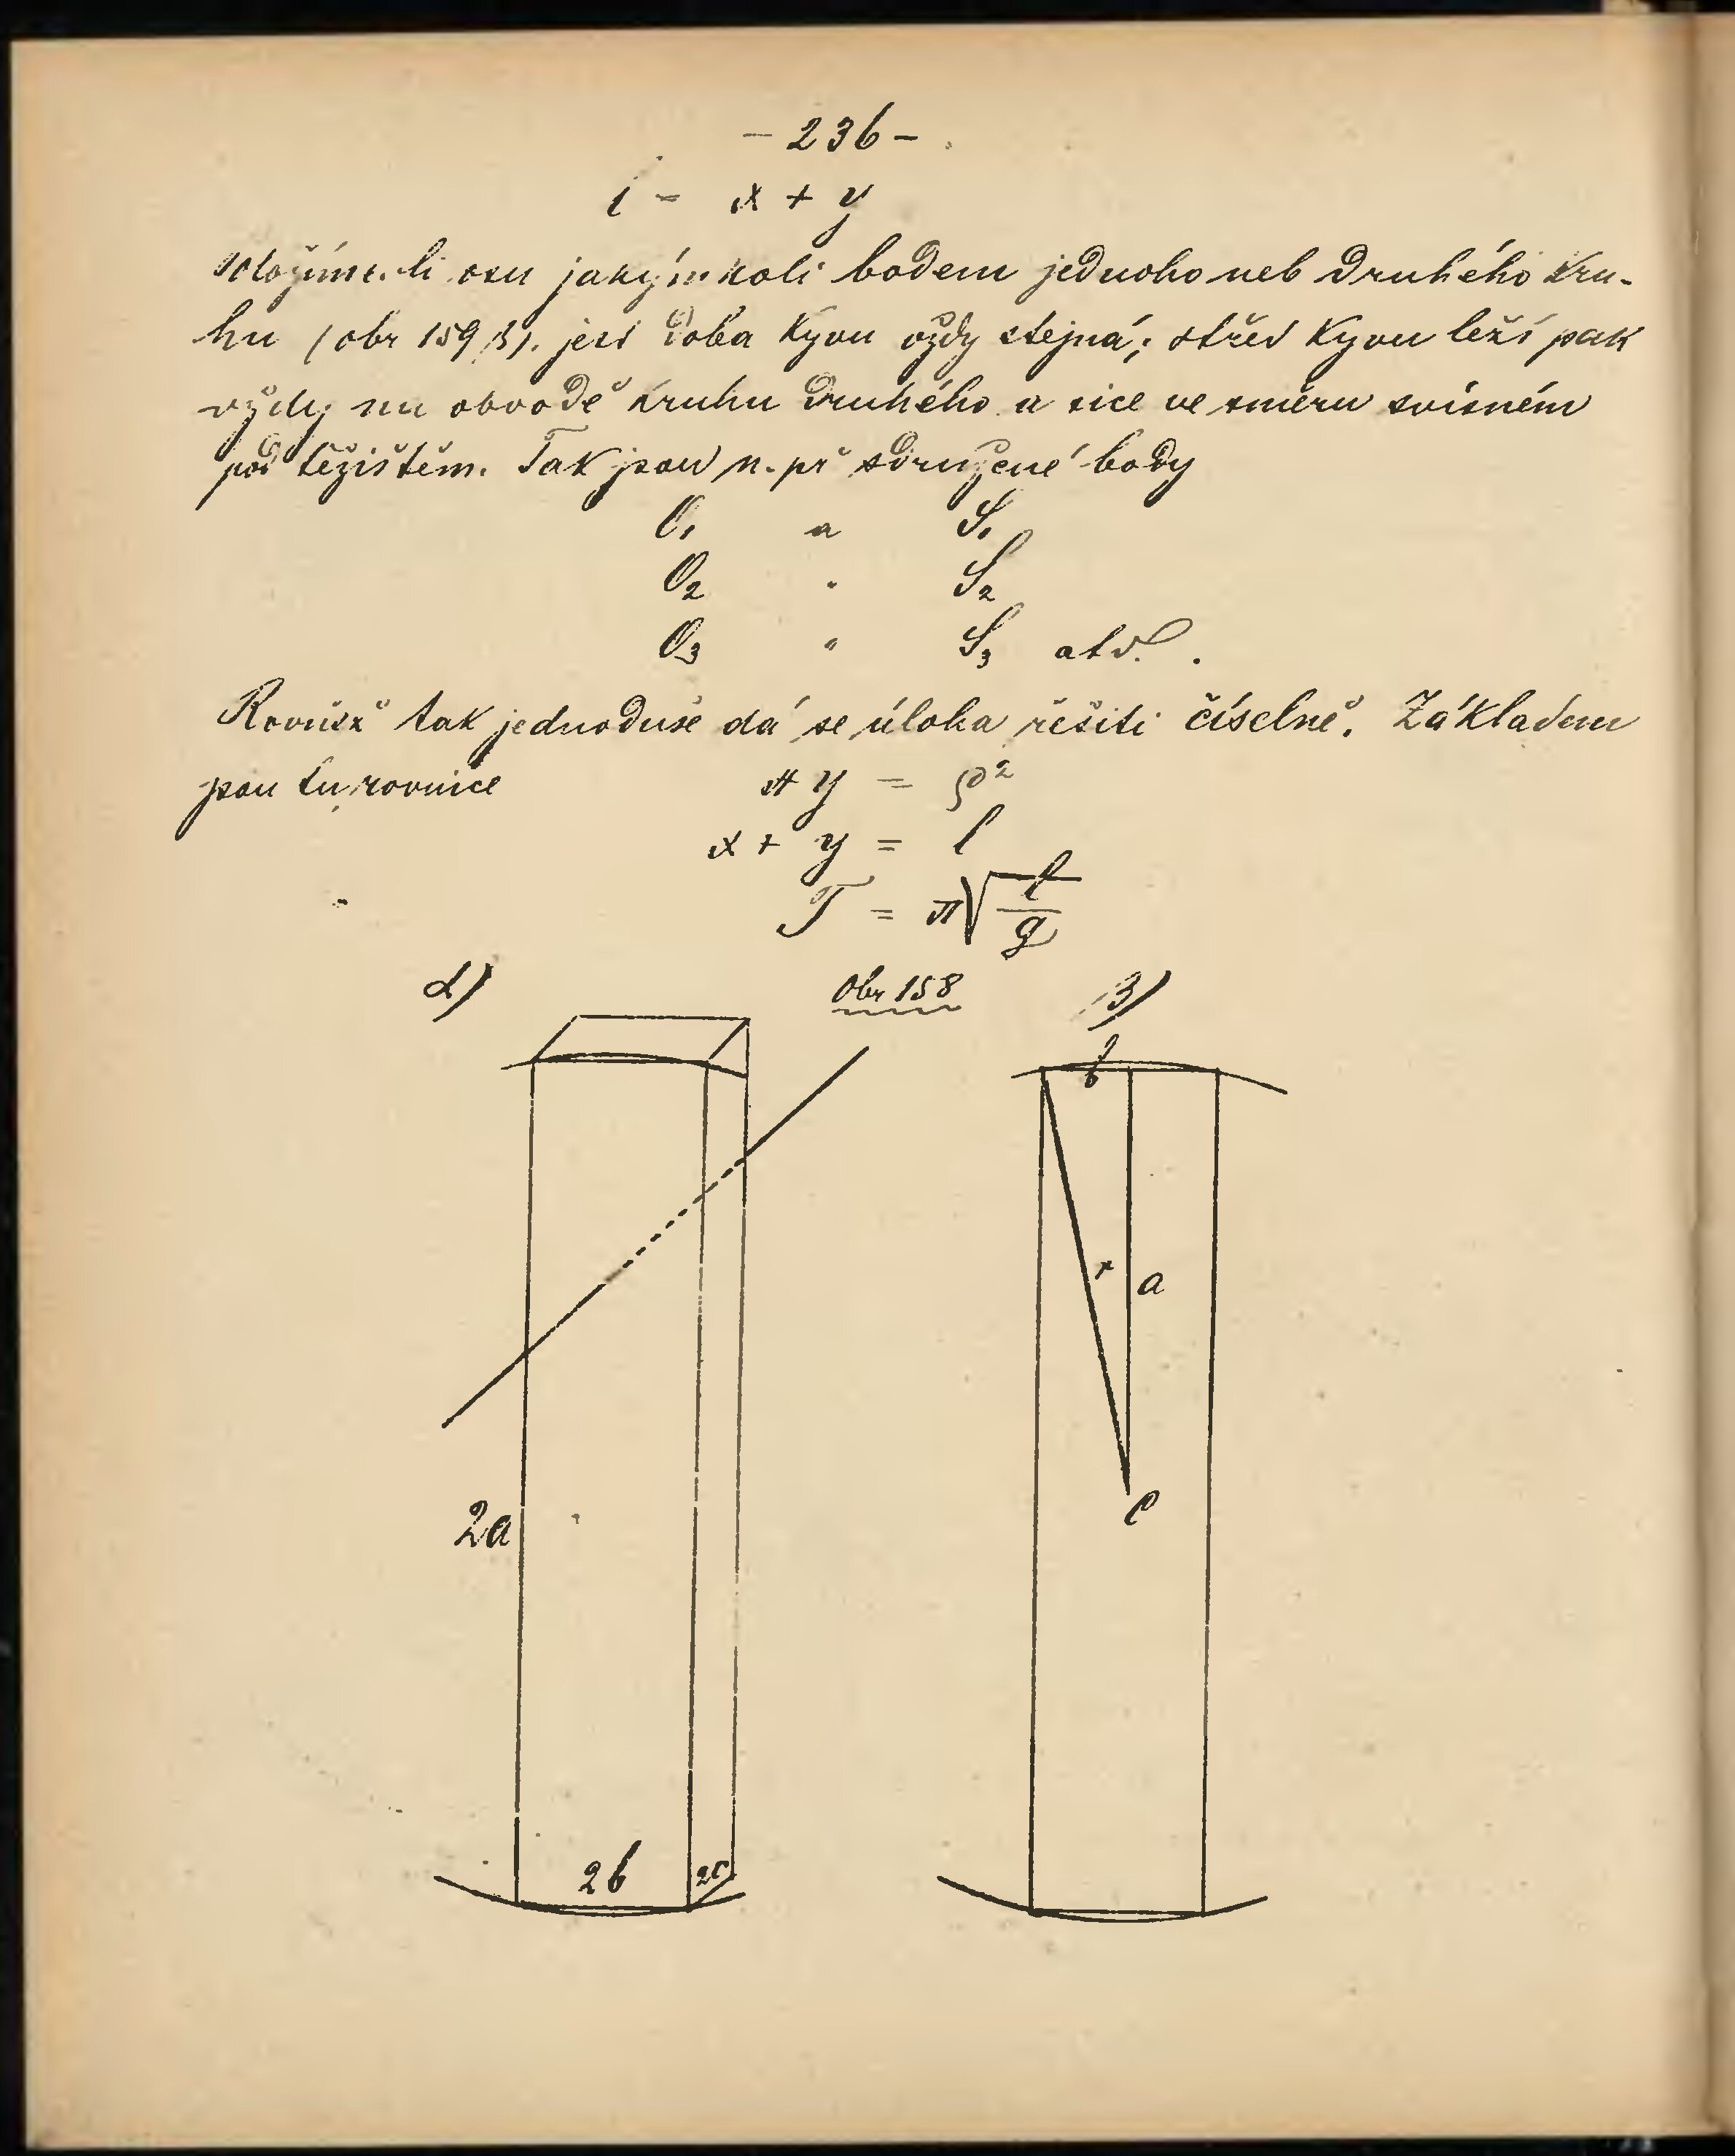 - 236 -
l = x + y
Položíme-li osu jakýmkoli bodem jednoho neb druhého kru-
hu (obr 159 β). jest doba kyvu vždy stejná; střed kyvu leží pak
vždy na obvodě kruhu druhého a sice ve směru svisném
pod těžištěm. Tak jsou n. př sdružené body
O₁ a S₁
O₂ " S₂
O₃ " S₃ atd.
Rovněž tak jednoduše dá se úloha řešiti číselně. Základem
jsou tu rovnice x y = ρ²
x + y = l
T = π√(l/g)
α) Obr 158 β)
b
r a
C
2a
2b 2c